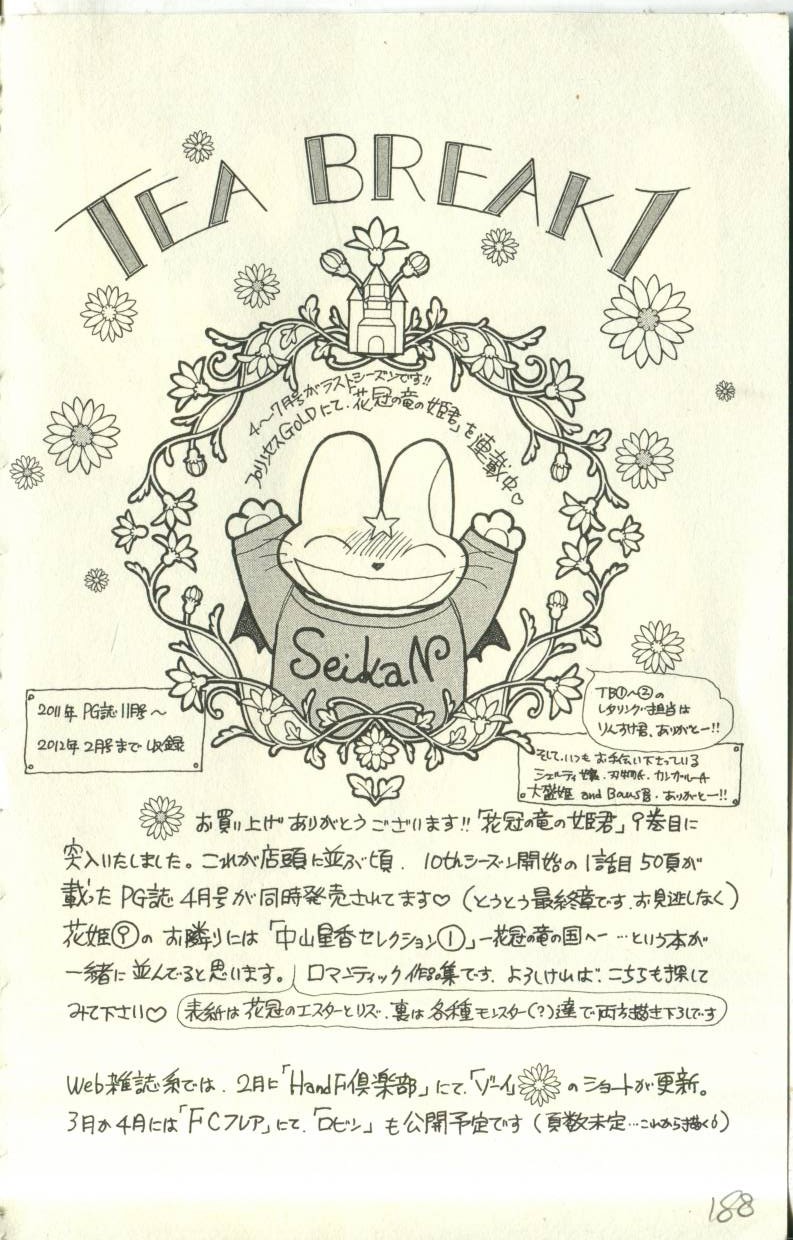 TEA BREAK 1
4〜7月号がラストシーズンです!!
プリンセスGOLDにて「花冠の竜の姫君」を連載中♡
SeikaN
2011年 PG誌11月号〜
2012年2月号まで収録
TB①〜②の
レタリング担当は
りんすけ君、ありがとー!!
そして、いつもお手伝い下さっている
シェルティ嬢、刃物K、カンガルーA
大盛姫 and Bows君、ありがとー!!
お買い上げありがとうございます!!「花冠の竜の姫君」9巻目に
突入いたしました。これが店頭に並ぶ頃、10thシーズン開始の1話目50頁が
載ったPG誌4月号が同時発売されてます♡(とうとう最終章です、お見逃しなく)
花姫⑨のお隣りには「中山星香セレクション①」—花冠の竜の国へ—…という本が
一緒に並んでると思います。ロマンティック作品集です、よろしければ、こちらも探して
みて下さい♡ 表紙は花冠のエスターとリズ、裏は各種モンスター(?)達で両方描き下ろしです
Web雑誌系では、2月に「HandF倶楽部」にて、「ゾーイ」のショートが更新。
3月か4月には「FCフレア」にて、「ロビン」も公開予定です(頁数未定…これから描く6)
188